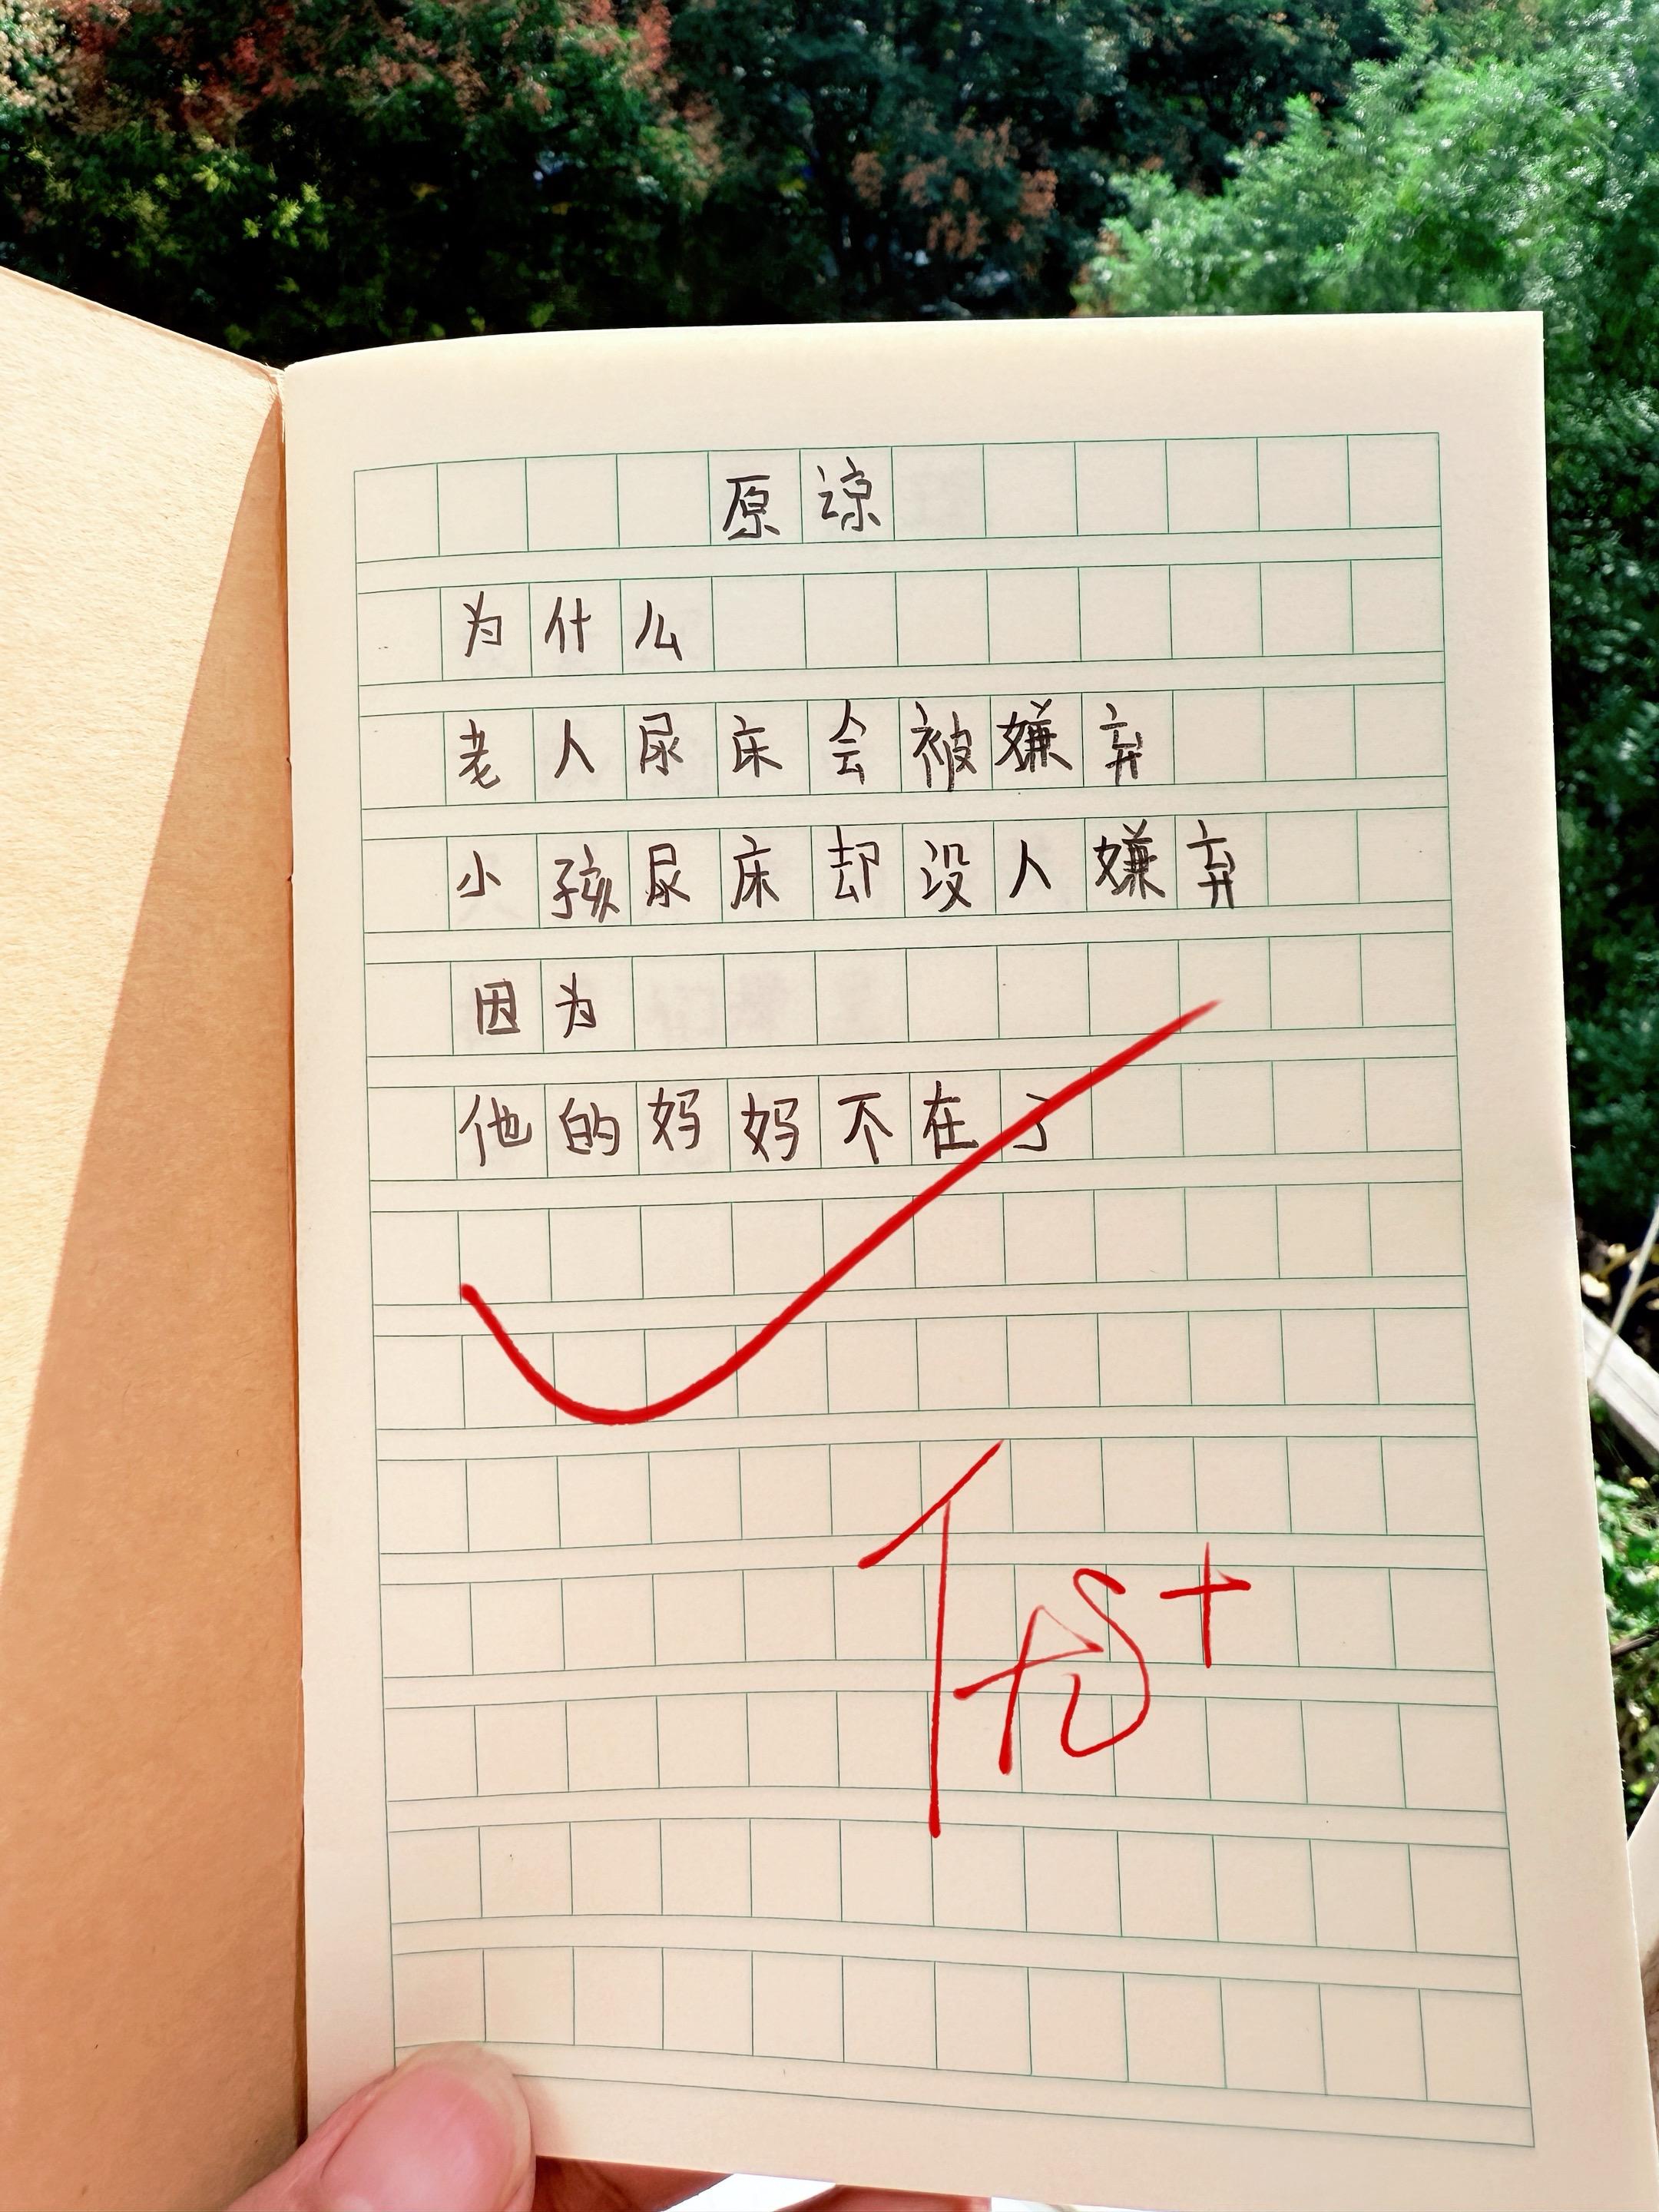 原谅
为什么
老人尿床会被嫌弃
小孩尿床却没人嫌弃
因为
他的妈妈不在了